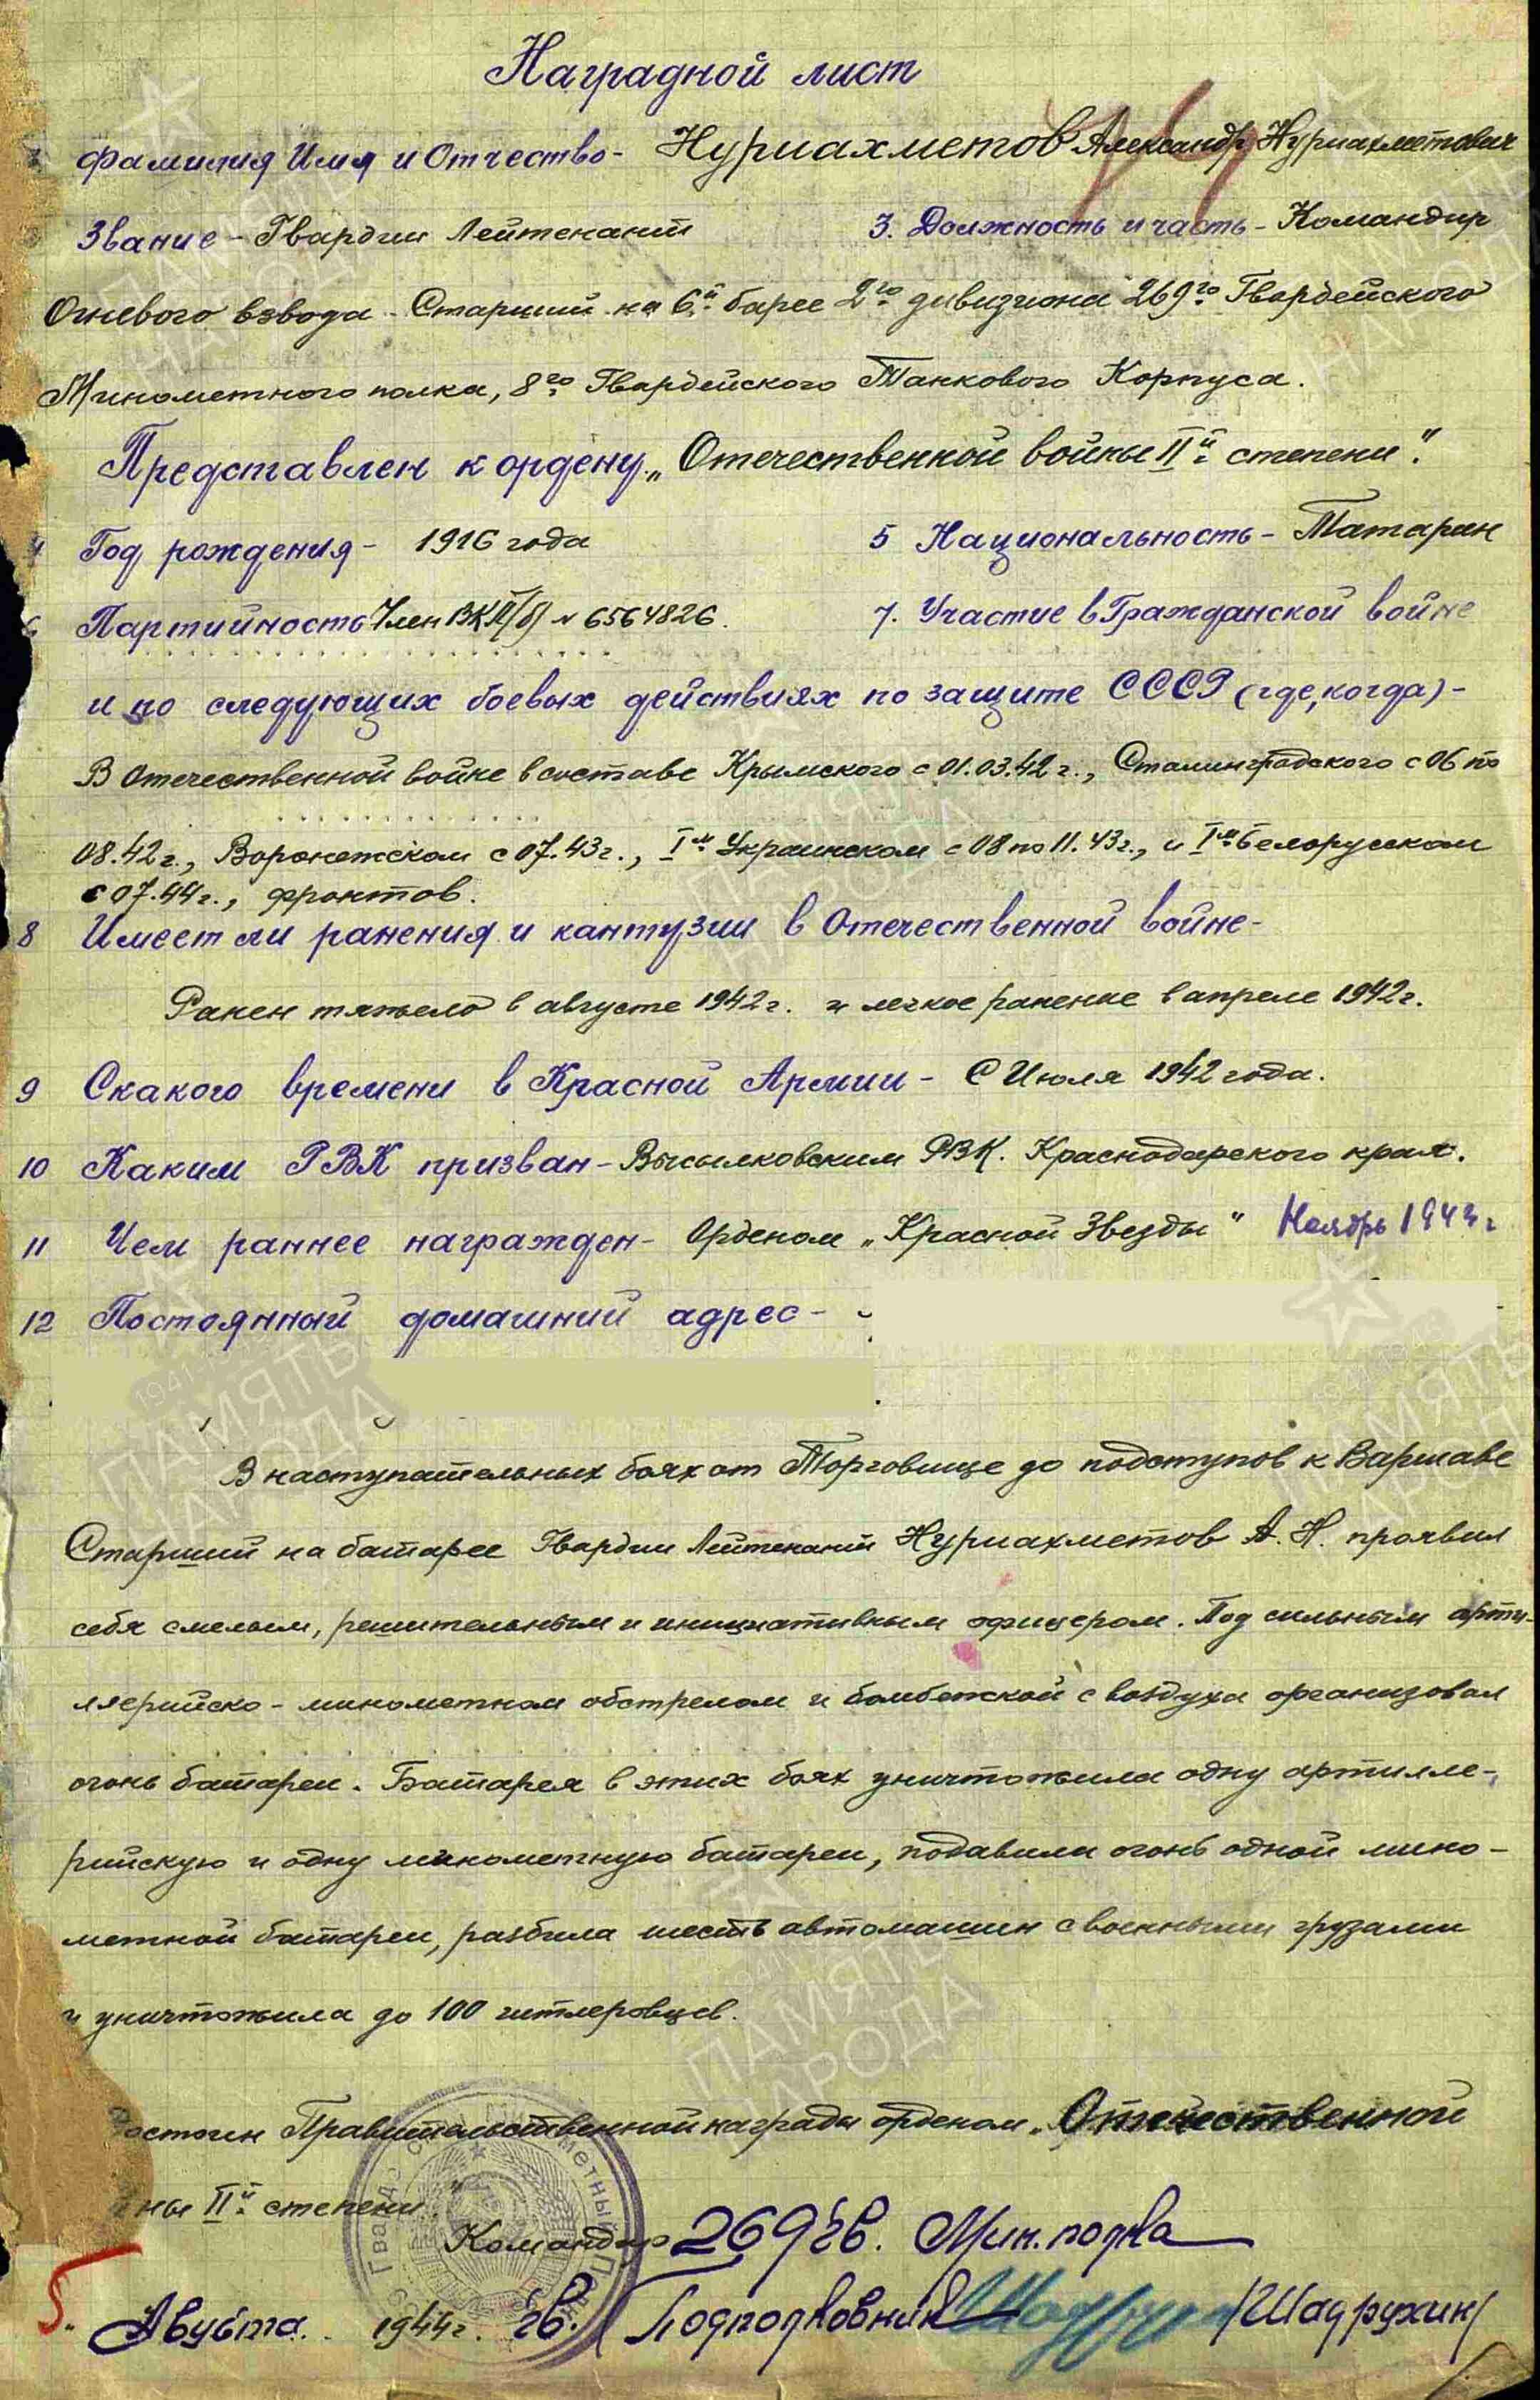 Наградной лист
Фамилия Имя и Отчество - Нуриахметов Александр Нуриахметович
Звание - Гвардии Лейтенант 3. Должность и часть - Командир
Огневого взвода - Старший на 6й барее 2го дивизиона 269го Гвардейского
Минометного полка, 8го Гвардейского Танкового Корпуса.
Представлен к ордену „Отечественной войны IIй степени".
4 Год рождения - 1916 года 5 Национальность - Татарин
6 Партийность Член ВКП(б) № 6564826. 7. Участие в Гражданской войне
и по следующих боевых действиях по защите СССР (где, когда) -
В Отечественной войне в составе Крымского с 01.03.42 г., Сталинградского с 06 по
08.42 г., Воронежском с 07.43 г., Iм Украинском с 08 по 11.43 г., и Iм Белорусском
с 07.44 г., фронтов.
8 Имеет ли ранения и кантузии в Отечественной войне -
Ранен тяжело в августе 1942 г. и легкое ранение в апреле 1942 г.
9 Скакого времени в Красной Армии - С Июля 1942 года.
10 Каким РВК призван - Высылковским РВК. Краснодарского края.
11 Чем раннее награжден - Орденом „Красной Звезды" Ноябрь 1943 г
12 Постоянный домашний адрес -
В наступательных боях от Торговище до подступов к Варшаве
Старший на батарее Гвардии Лейтенант Нуриахметов А. Н. проявил
себя смелым, решительным и инициативным офицером. Под сильным арти-
ллерийско - минометном обстрелом и бомбежкой с воздуха организовал
огонь батареи. Батарея в этих боях уничтожила одну артилле-
рийскую и одну минометную батареи, подавила огонь одной мино-
метной батареи, разбила шесть автомашин с военными грузами
и уничтожила до 100 гитлеровцев.
достоин Правительственной награды орденом „Отечественной
йны IIй степени"
Командир 269 гв. Мин. полка
5. Августа 1944 г. гв. Подполковник /Шадрухин/
ПАМЯТЬ НАРОДА